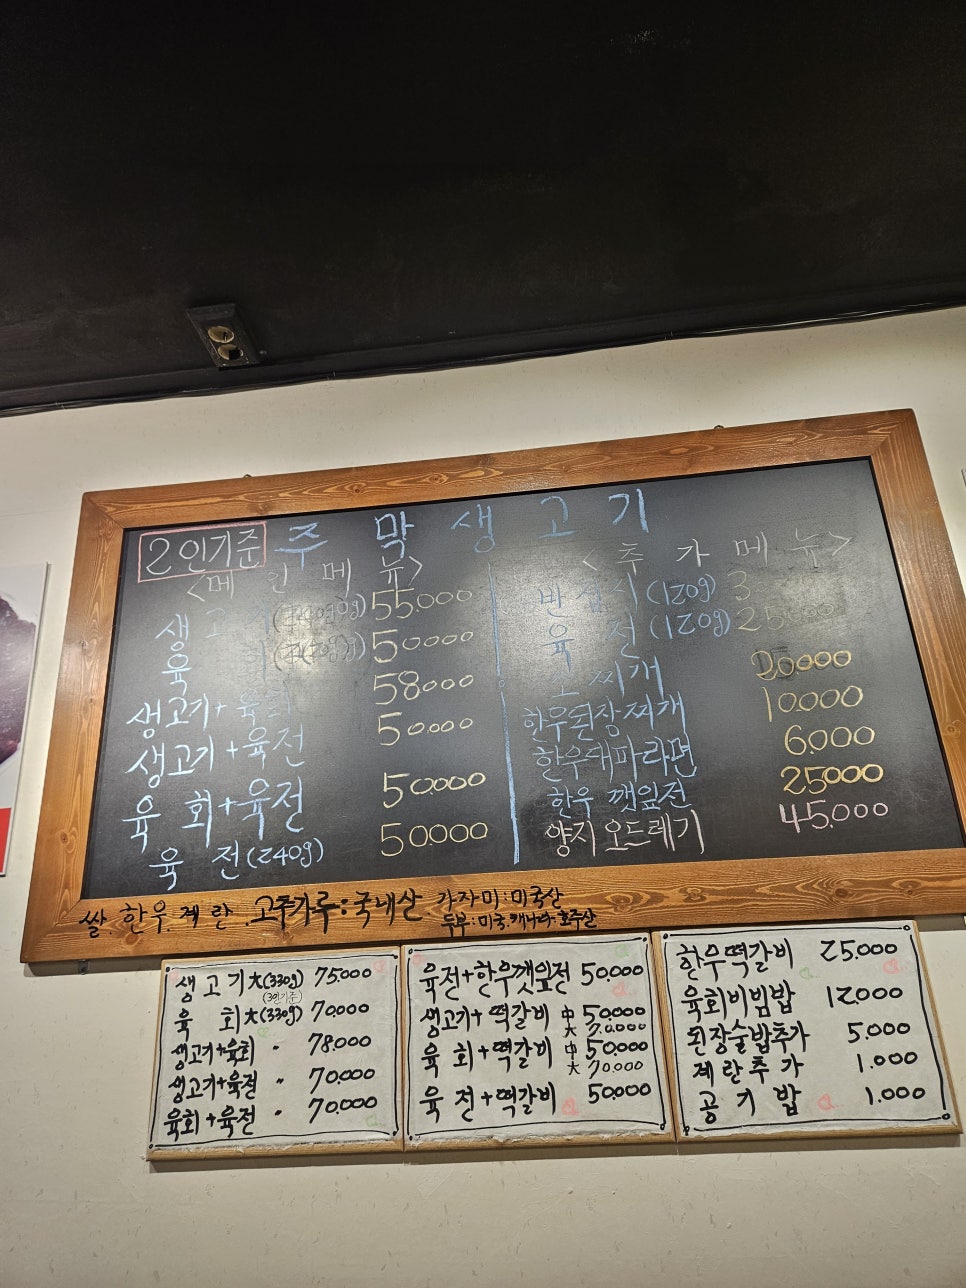 2인기준 주막생고기
<메인메뉴>
생고기 55.000
육회 50000
생고기+육회 58000
생고기+육전 50.000
육회+육전 50000
육전(240g) 50000
<추가메뉴>
반접시(120g) 3
육전(120g) 25000
찌개 20000
한우된장찌개 10000
한우대파라면 6000
한우깻잎전 25000
양지오드레기 45.000
쌀.한우.계란.고추가루:국내산 가자미:미국산
두부:미국.캐나다.호주산
생고기大(330g) 75.000
(3인기준)
육회大(330g) 70.000
생고기+육회 〃 78.000
생고기+육전 〃 70.000
육회+육전 〃 70.000
육전+한우깻잎전 50.000
생고기+떡갈비 中 50.000
大 70.000
육회+떡갈비 中 50.000
大 70.000
육전+떡갈비 50.000
한우떡갈비 25.000
육회비빔밥 12.000
된장술밥추가 5.000
계란추가 1.000
공기밥 1.000